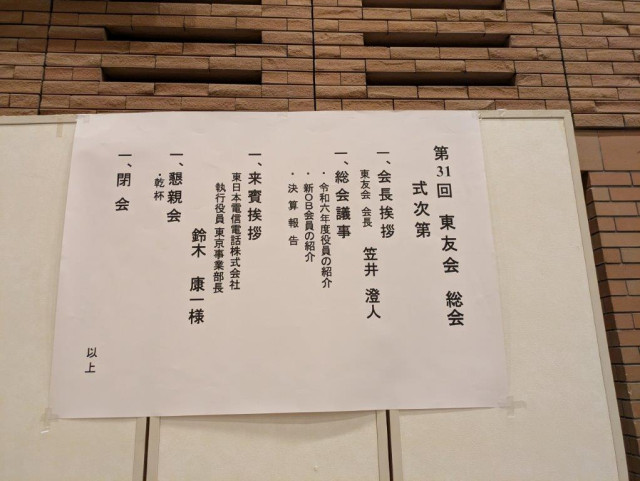 第31回 東友会 総会
式次第
一、会長挨拶
東友会 会長 笠井 澄人
一、総会議事
・令和六年度役員の紹介
・新OB会員の紹介
・決算報告
一、来賓挨拶
東日本電信電話株式会社
執行役員 東京事業部長
鈴木 康一様
一、懇親会
・乾杯
一、閉会
以上